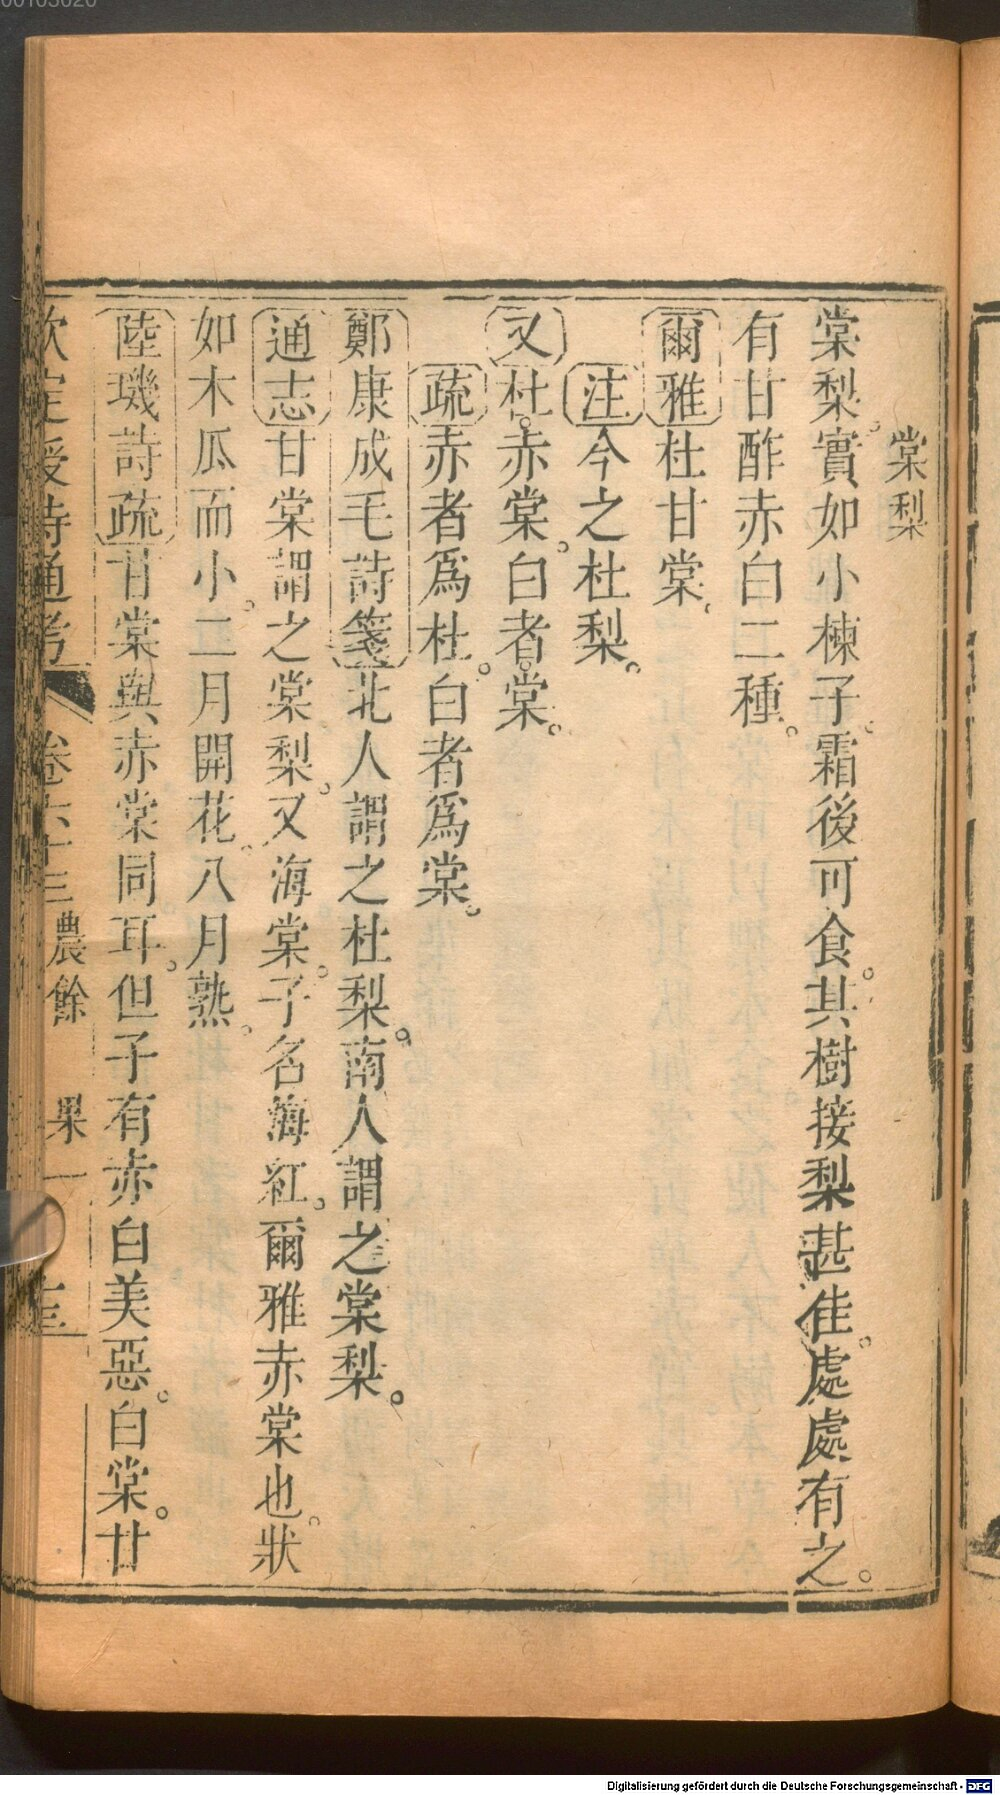 棠梨
棠梨。實如小楝子。霜後可食。其樹接梨甚佳。處處有之。
有甘酢赤白二種。
爾雅杜甘棠。
注今之杜梨。
又杜。赤棠。白者。棠。
疏赤者為杜。白者為棠。
鄭康成毛詩箋北人謂之杜梨。南人謂之棠梨。
通志甘棠謂之棠梨。又海棠。子名海紅。爾雅赤棠也。狀
如木瓜而小。二月開花。八月熟。
陸璣詩疏甘棠與赤棠同耳。但子有赤白美惡。白棠。甘
欽定授時通考 卷六十三 農餘 果一
Digitalisierung gefördert durch die Deutsche Forschungsgemeinschaft - DFG